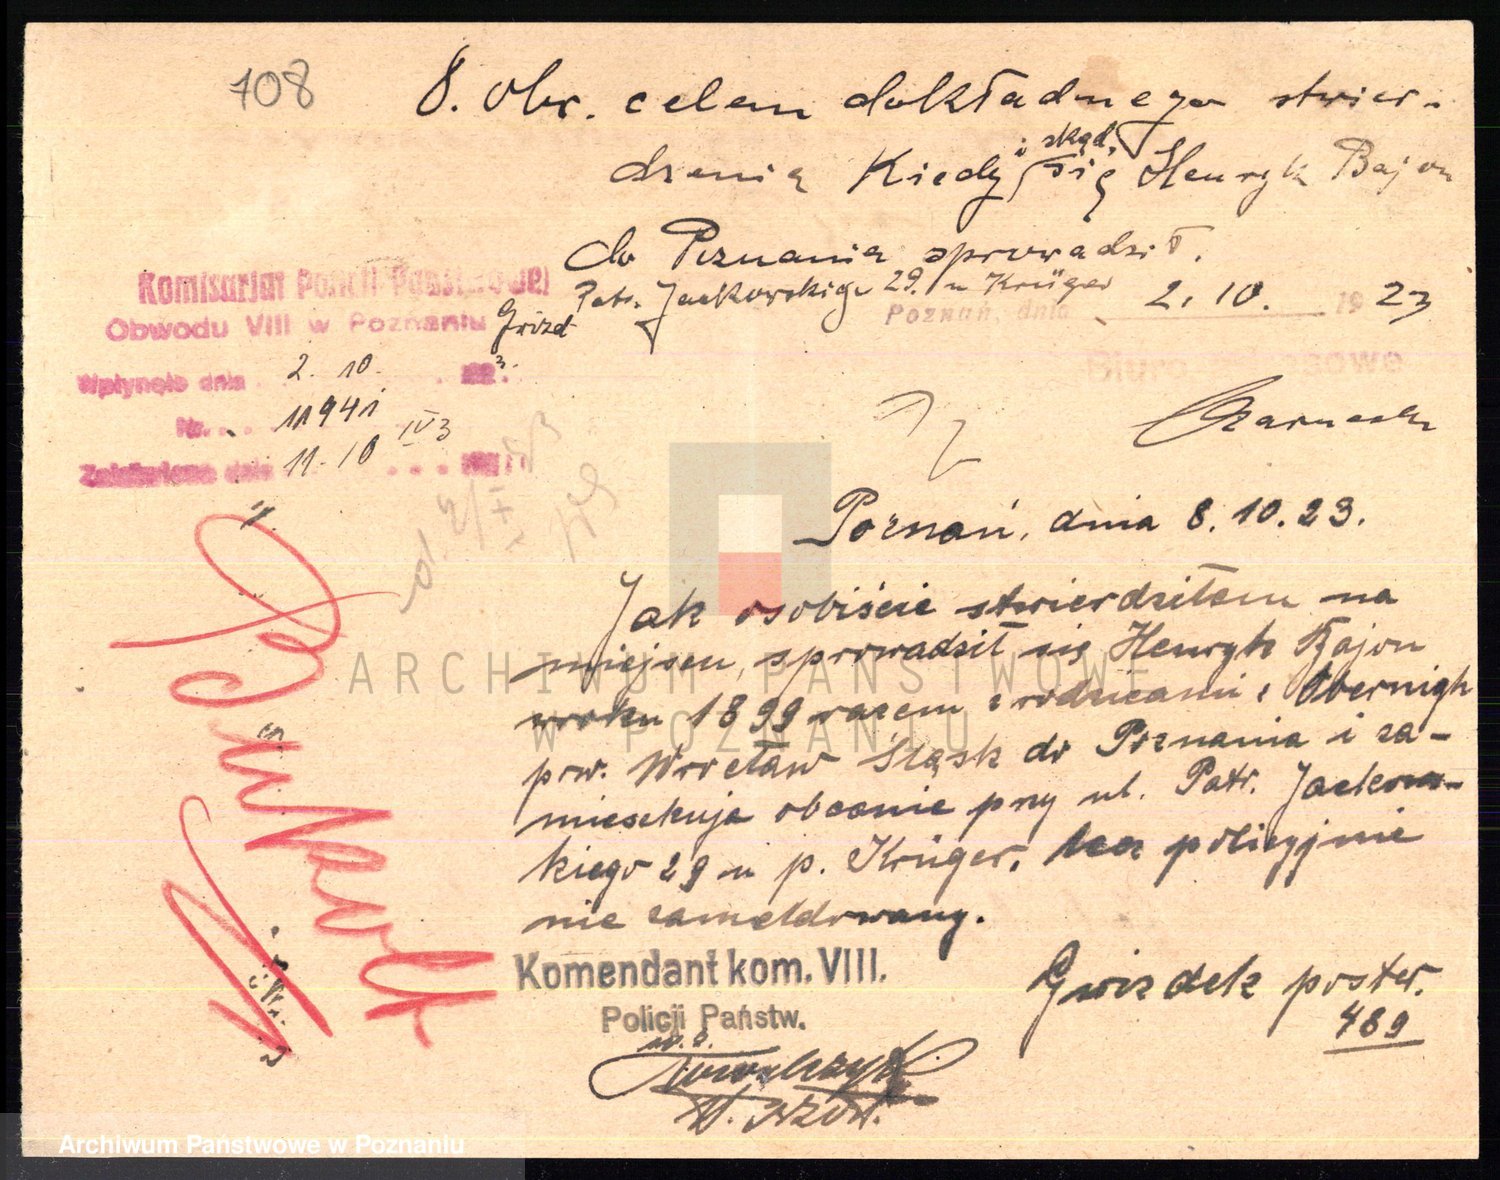 108
8. obw. celem dokładnego stwier-
dzenia kiedy i skąd się Henryk Bajon
do Poznania sprowadził.
Patr. Jackowskiego 29. u Krüger
Komisarjat Policji Państwowej
Obwodu VIII w Poznaniu
Wpłynęło dnia 2. 10. 23.
Nr. 11941
Załatwiono dnia 11. 10
Poznań, dnia 2. 10. 1923
Biuro
Poznań, dnia 8. 10. 23.
Jak osobiście stwierdziłem na
miejscu, sprowadził się Henryk Bajon
w roku 1899 razem z rodzicami z Obernigk
pow. Wrocław Śląsk do Poznania i za-
mieszkuje obecnie przy ul. Patr. Jackows-
kiego 29 u p. Krüger, lecz policyjnie
nie zameldowany.
Komendant kom. VIII.
Policji Państw.
w. z.
Gwizdek poster.
489
ARCHIWUM PAŃSTWOWE
W POZNANIU
Archiwum Państwowe w Poznaniu